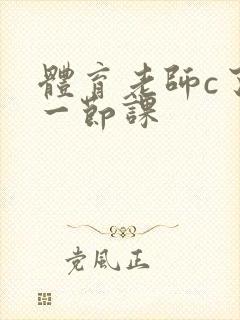 體育老師c了
一節課
党風正